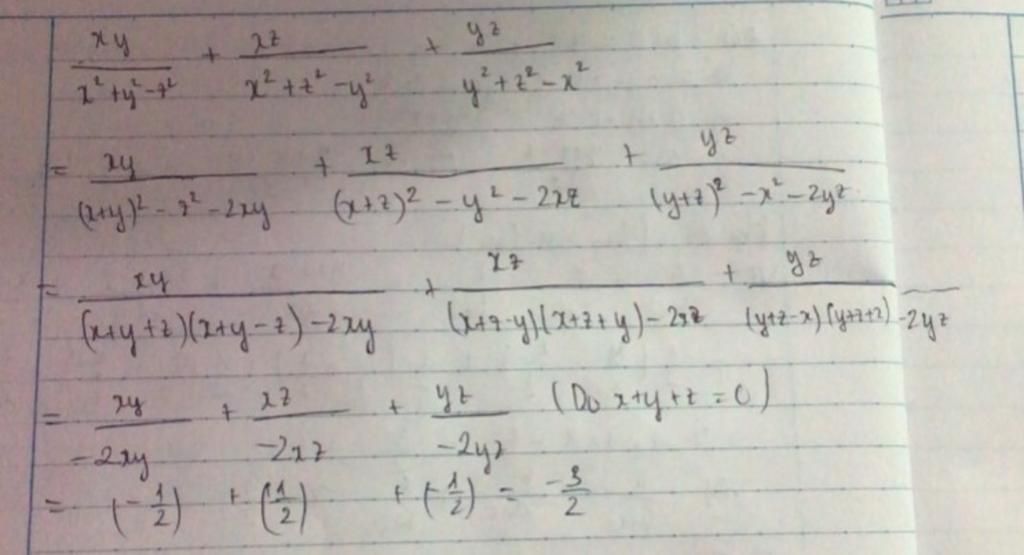 xy/(x²+y²-z²) + xz/(x²+z²-y²) + yz/(y²+z²-x²)
= xy/((x+y)²-z²-2xy) + xz/((x+z)²-y²-2xz) + yz/((y+z)²-x²-2yz)
= xy/((x+y+z)(x+y-z)-2xy) + xz/((x+z-y)(x+z+y)-2xz) + yz/((y+z-x)(y+z+x)-2yz)
= xy/(-2xy) + xz/(-2xz) + yz/(-2yz) (Do x+y+z=0)
= (-1/2) + (-1/2) + (-1/2) = -3/2